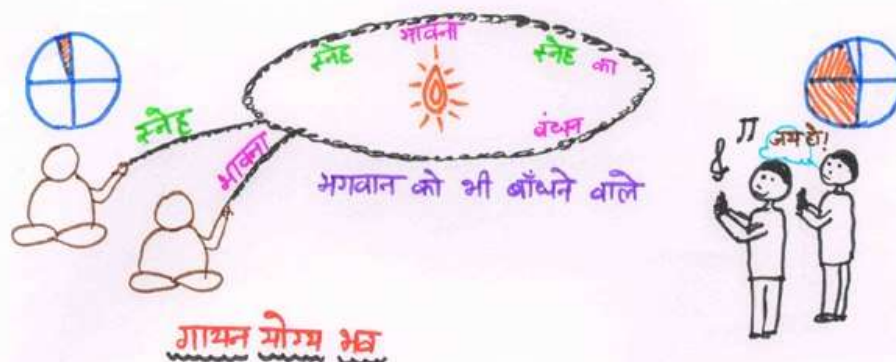 स्नेह भावना स्नेह का
बंधन
स्नेह
भावना
भगवान को भी बाँधने वाले
जय हो!
गायन योग्य भव